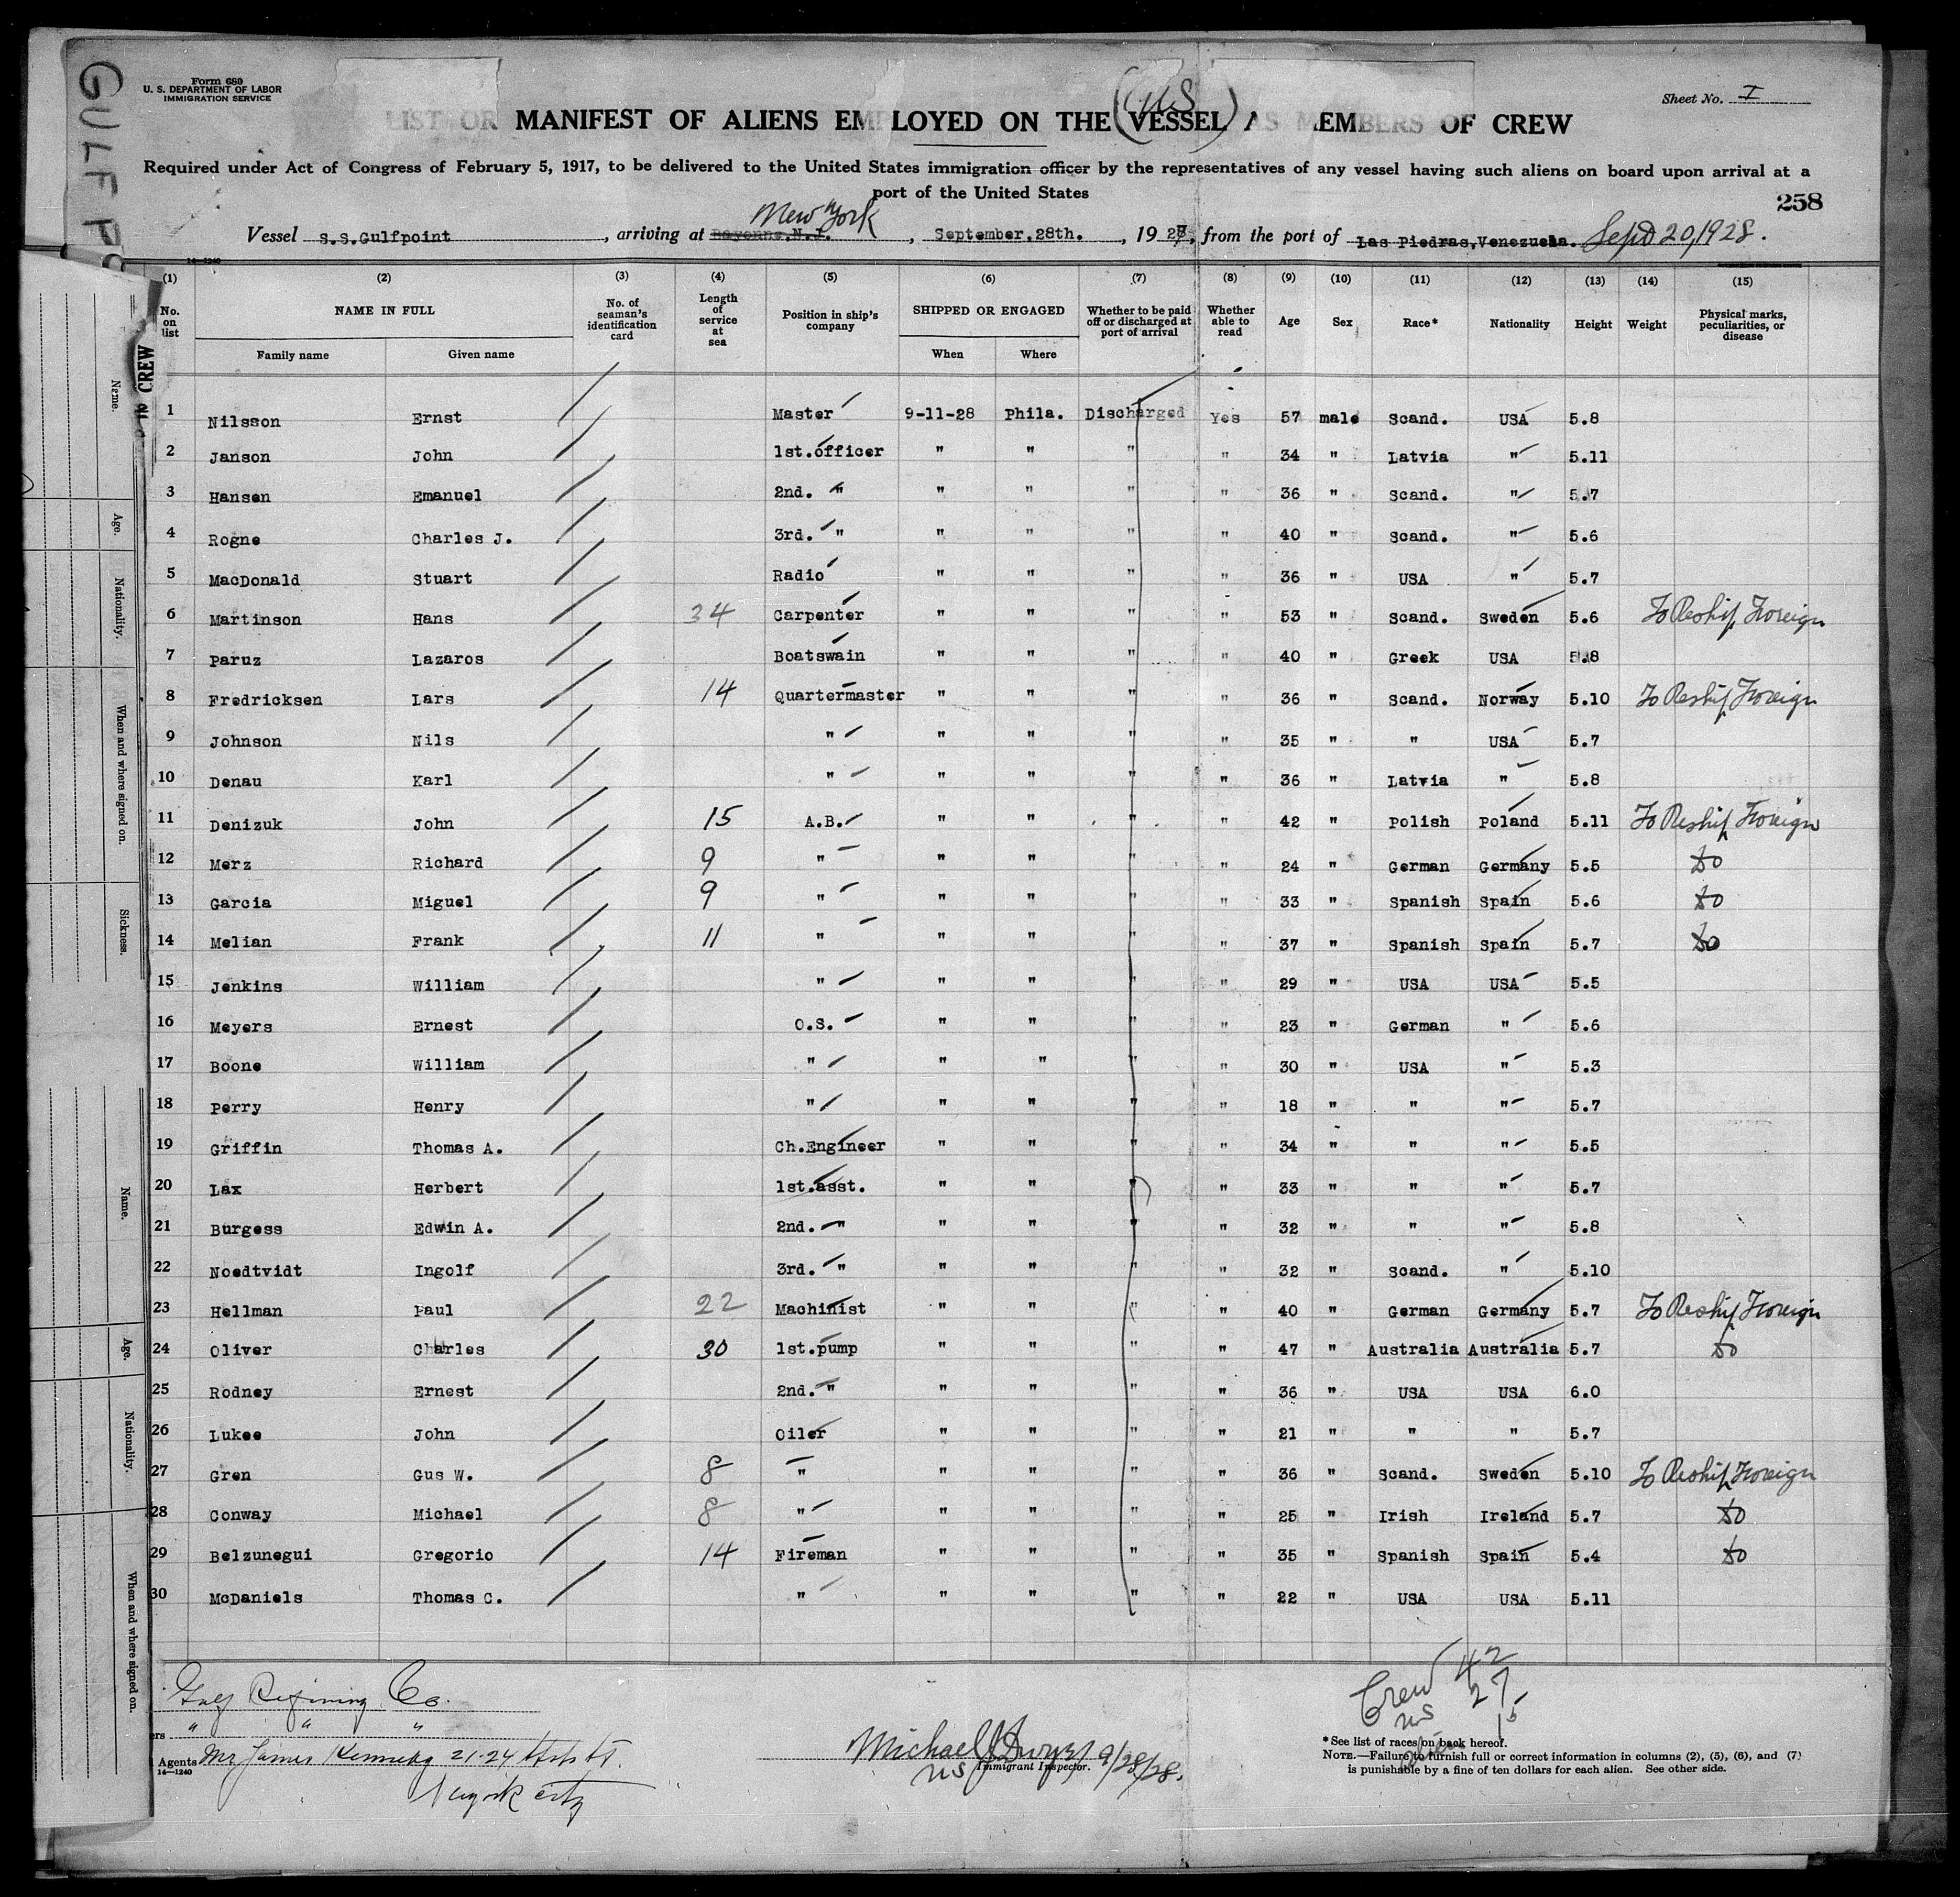 GULFP
Form 680
U. S. DEPARTMENT OF LABOR
IMMIGRATION SERVICE
Sheet No. I
(US)
LIST OR MANIFEST OF ALIENS EMPLOYED ON THE VESSEL AS MEMBERS OF CREW
Required under Act of Congress of February 5, 1917, to be delivered to the United States immigration officer by the representatives of any vessel having such aliens on board upon arrival at a
port of the United States
258
New York
Vessel S.S.Gulfpoint, arriving at Bayonne.N.J., September.28th., 1928, from the port of Las Piedras,Venezuela. Sept 20, 1928.
14—1240
(1) (2) (3) (4) (5) (6) (7) (8) (9) (10) (11) (12) (13) (14) (15)
No. on list NAME IN FULL Family name Given name No. of seaman's identification card Length of service at sea Position in ship's company SHIPPED OR ENGAGED When Where Whether to be paid off or discharged at port of arrival Whether able to read Age Sex Race* Nationality Height Weight Physical marks, peculiarities, or disease
1 Nilsson Ernst Master 9-11-28 Phila. Discharged Yes 57 male Scand. USA 5.8
2 Janson John 1st.officer " " " " 34 " Latvia " 5.11
3 Hansen Emanuel 2nd. " " " " " 36 " Scand. " 5.7
4 Rogne Charles J. 3rd. " " " " " 40 " Scand. " 5.6
5 MacDonald Stuart Radio " " " " 36 " USA " 5.7
6 Martinson Hans 34 Carpenter " " " " 53 " Scand. Sweden 5.6 To Reship Foreign
7 Paruz Lazaros Boatswain " " " " 40 " Greek USA 5.8
8 Fredricksen Lars 14 Quartermaster " " " " 36 " Scand. Norway 5.10 To Reship Foreign
9 Johnson Nils " " " " " 35 " " USA 5.7
10 Denau Karl " " " " " 36 " Latvia " 5.8
11 Denizuk John 15 A.B. " " " " 42 " Polish Poland 5.11 To Reship Foreign
12 Merz Richard 9 " " " " " 24 " German Germany 5.5 do
13 Garcia Miguel 9 " " " " " 33 " Spanish Spain 5.6 do
14 Melian Frank 11 " " " " " 37 " Spanish Spain 5.7 do
15 Jenkins William " " " " " 29 " USA USA 5.5
16 Meyers Ernest O.S. " " " " 23 " German " 5.6
17 Boone William " " " " " 30 " USA " 5.3
18 Perry Henry " " " " " 18 " " " 5.7
19 Griffin Thomas A. Ch.Engineer " " " " 34 " " " 5.5
20 Lax Herbert 1st.asst. " " " " 33 " " " 5.7
21 Burgess Edwin A. 2nd. " " " " " 32 " " " 5.8
22 Noedtvidt Ingolf 3rd. " " " " " 32 " Scand. " 5.10
23 Hellman Paul 22 Machinist " " " " 40 " German Germany 5.7 To Reship Foreign
24 Oliver Charles 30 1st.pump " " " " 47 " Australia Australia 5.7 do
25 Rodney Ernest 2nd. " " " " " 36 " USA USA 6.0
26 Lukee John Oiler " " " " 21 " " " 5.7
27 Gren Gus W. 8 " " " " " 36 " Scand. Sweden 5.10 To Reship Foreign
28 Conway Michael 8 " " " " " 25 " Irish Ireland 5.7 do
29 Belzunegui Gregorio 14 Fireman " " " " 35 " Spanish Spain 5.4 do
30 McDaniels Thomas C. " " " " " 22 " USA USA 5.11
Gulf Refining Co.
ers " " "
Agents Mr James Kennedy 21-24 St.
New york city
14—1240
Michael J Dwyer 9/28/28.
US Immigrant Inspector.
Crew 42
US 27
15
* See list of races on back hereof.
NOTE.—Failure to furnish full or correct information in columns (2), (5), (6), and (7)
is punishable by a fine of ten dollars for each alien. See other side.
CREW
Name.
Age.
Nationality.
When and where signed on.
Sickness.
Name.
Age.
Nationality.
When and where signed on.